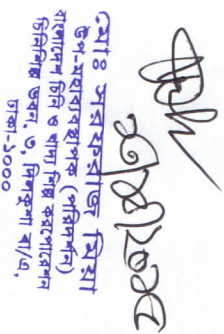 মোঃ সরফরাজ মিয়া
উপ-মহাব্যবস্থাপক (পরিদর্শন)
বাংলাদেশ চিনি ও খাদ্য শিল্প করপোরেশন
চিনিশিল্প ভবন, ৩, দিলকুশা বা/এ,
ঢাকা-১০০০